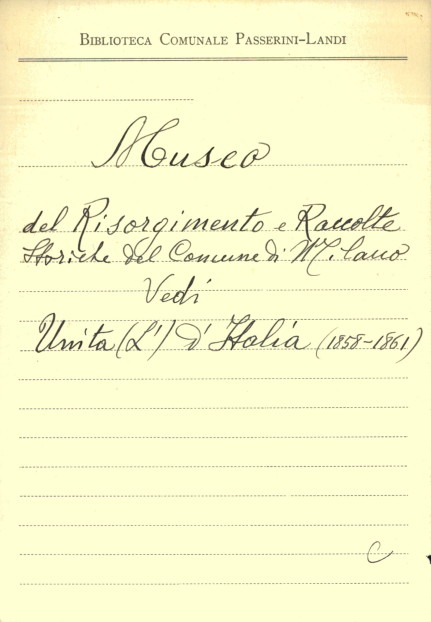 BIBLIOTECA COMUNALE PASSERINI-LANDI
Museo
del Risorgimento e Raccolte
Storiche del Comune di Milano
Vedi
Unita (L') d'Italia (1858-1861)
C